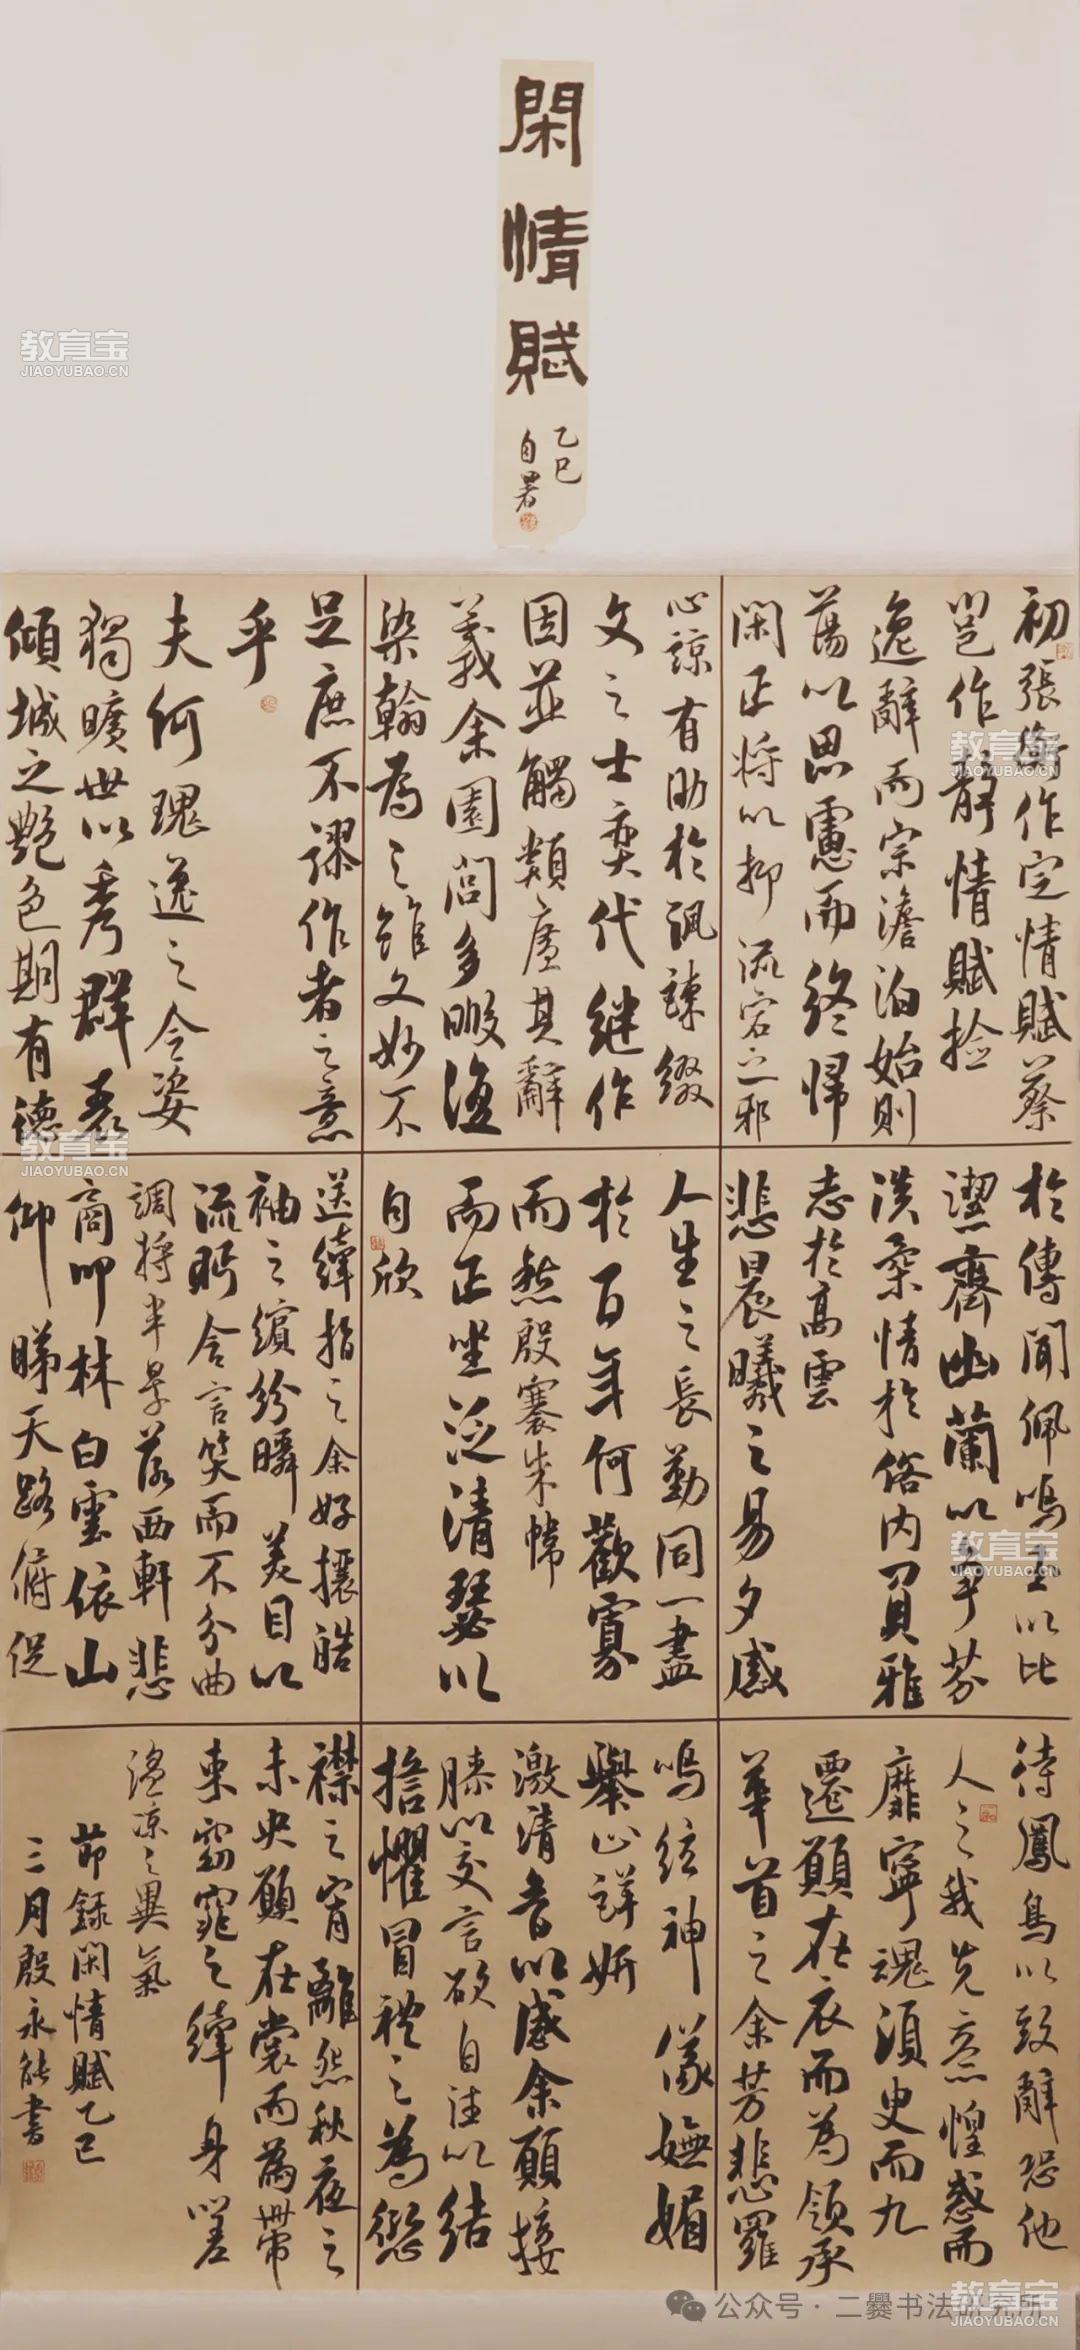 閑情賦
乙巳
自署
初張衡作定情賦蔡
邕作静情賦撿
逸辭而宗澹泊始則
蕩以思慮而終歸
閑正将以抑流宕之邪
心諒有助於諷諫綴
文之士奕代継作
因並觸類廣其辭
義余園閭多暇復
染翰為之雖文妙不
足庶不謬作者之意
乎
夫何瑰逸之令姿
獨曠世以秀群表
傾城之艷色期有德
於傳聞佩鳴玉以比
潔齊幽蘭以争芬
淡柔情於俗内負雅
志於高雲
悲晨曦之易夕感
人生之長勤同一盡
於百年何歡寡
而愁殷褰朱幃
而正坐泛清瑟以
自欣
送纖指之余好攘皓
袖之繽紛瞬美目以
流眄含言笑而不分曲
調将半景落西軒悲
商叩林白雲依山
仰睇天路俯促
待鳳鳥以致辭恐他
人之我先意惶惑而
靡寧魂須臾而九
遷願在衣而為領承
華首之余芳悲羅
鳴弦神儀嫵媚
舉止詳妍
激清音以感余願接
膝以交言欲自往以結
誓懼冒禮之為愆
襟之宵離怨秋夜之
未央願在裳而為帶
束窈窕之纖身嗟
温凉之異氣
節録閑情賦乙巳
三月殷永能書
教育宝
JIAOYUBAO.CN
教育宝
JIAOYUBAO.CN
教育宝
JIAOYUBAO.CN
教育宝
JIAOYUBAO.CN
教育宝
JIAOYUBAO.CN
公众号·二爨书法研究所